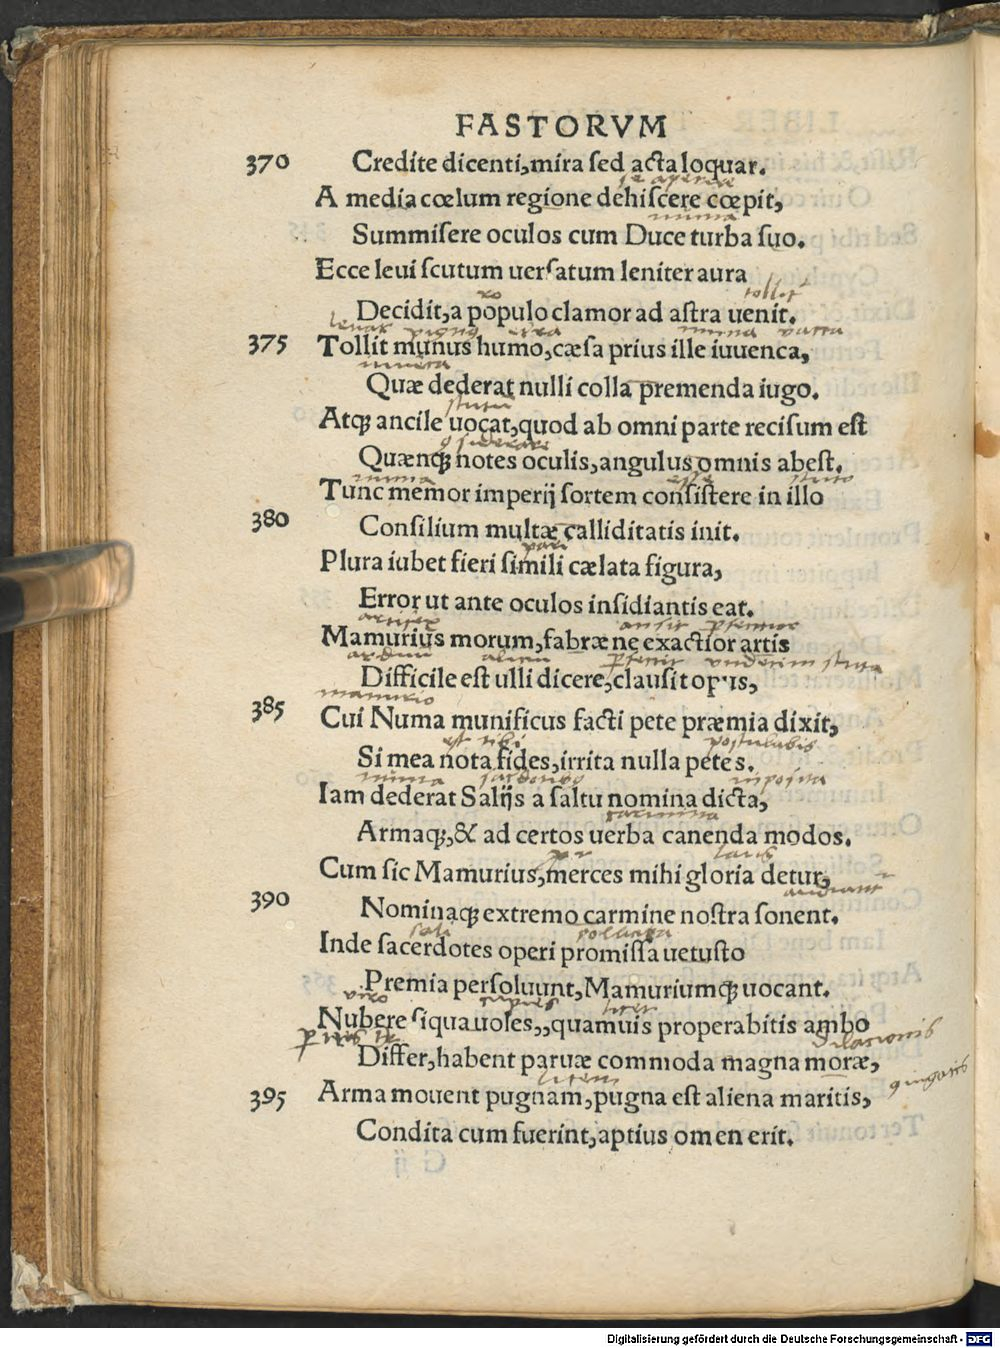 FASTORVM
370 Credite dicenti, mira ſed acta loquar.
se aperire
A media cœlum regione dehiſcere cœpit,
numa
Summiſere oculos cum Duce turba ſuo.
Ecce leui ſcutum uerſatum leniter aura
ro tollit
Decidit, a populo clamor ad aſtra uenit.
leuat numa vacca
375 Tollit munus humo, cæſa prius ille iuuenca,
Quæ dederat nulli colla premenda iugo.
Atqꝫ ancile uocat, quod ab omni parte reciſum eſt
Quænqꝫ notes oculis, angulus omnis abeſt.
numa esse scuto
Tunc memor imperij ſortem conſiſtere in illo
380 Conſilium multæ calliditatis init.
pari
Plura iubet fieri ſimili cælata figura,
Error ut ante oculos inſidiantis eat.
artifex
Mamurius morum, fabræ ne exactior artis
Difficile eſt ulli dicere, clauſit opus,
mamurio
385 Cui Numa munificus facti pete præmia dixit,
est tibi postulabis
Si mea nota fides, irrita nulla petes.
numa
Iam dederat Salijs a ſaltu nomina dicta,
carmina
Armaqꝫ, & ad certos uerba canenda modos.
laus
Cum ſic Mamurius, merces mihi gloria detur,
390 Nominaqꝫ extremo carmine noſtra ſonent.
sali
Inde ſacerdotes operi promiſſa uetuſto
Premia perſoluunt, Mamuriumqꝫ uocant.
viro cupies licet
Nubere ſiqua uoles,, quamuis properabitis ambo
dilacionis
Differ, habent paruæ commoda magna moræ,
litem
395 Arma mouent pugnam, pugna eſt aliena maritis,
Condita cum fuerint, aptius omen erit.
Digitalisierung gefördert durch die Deutsche Forschungsgemeinschaft - DFG